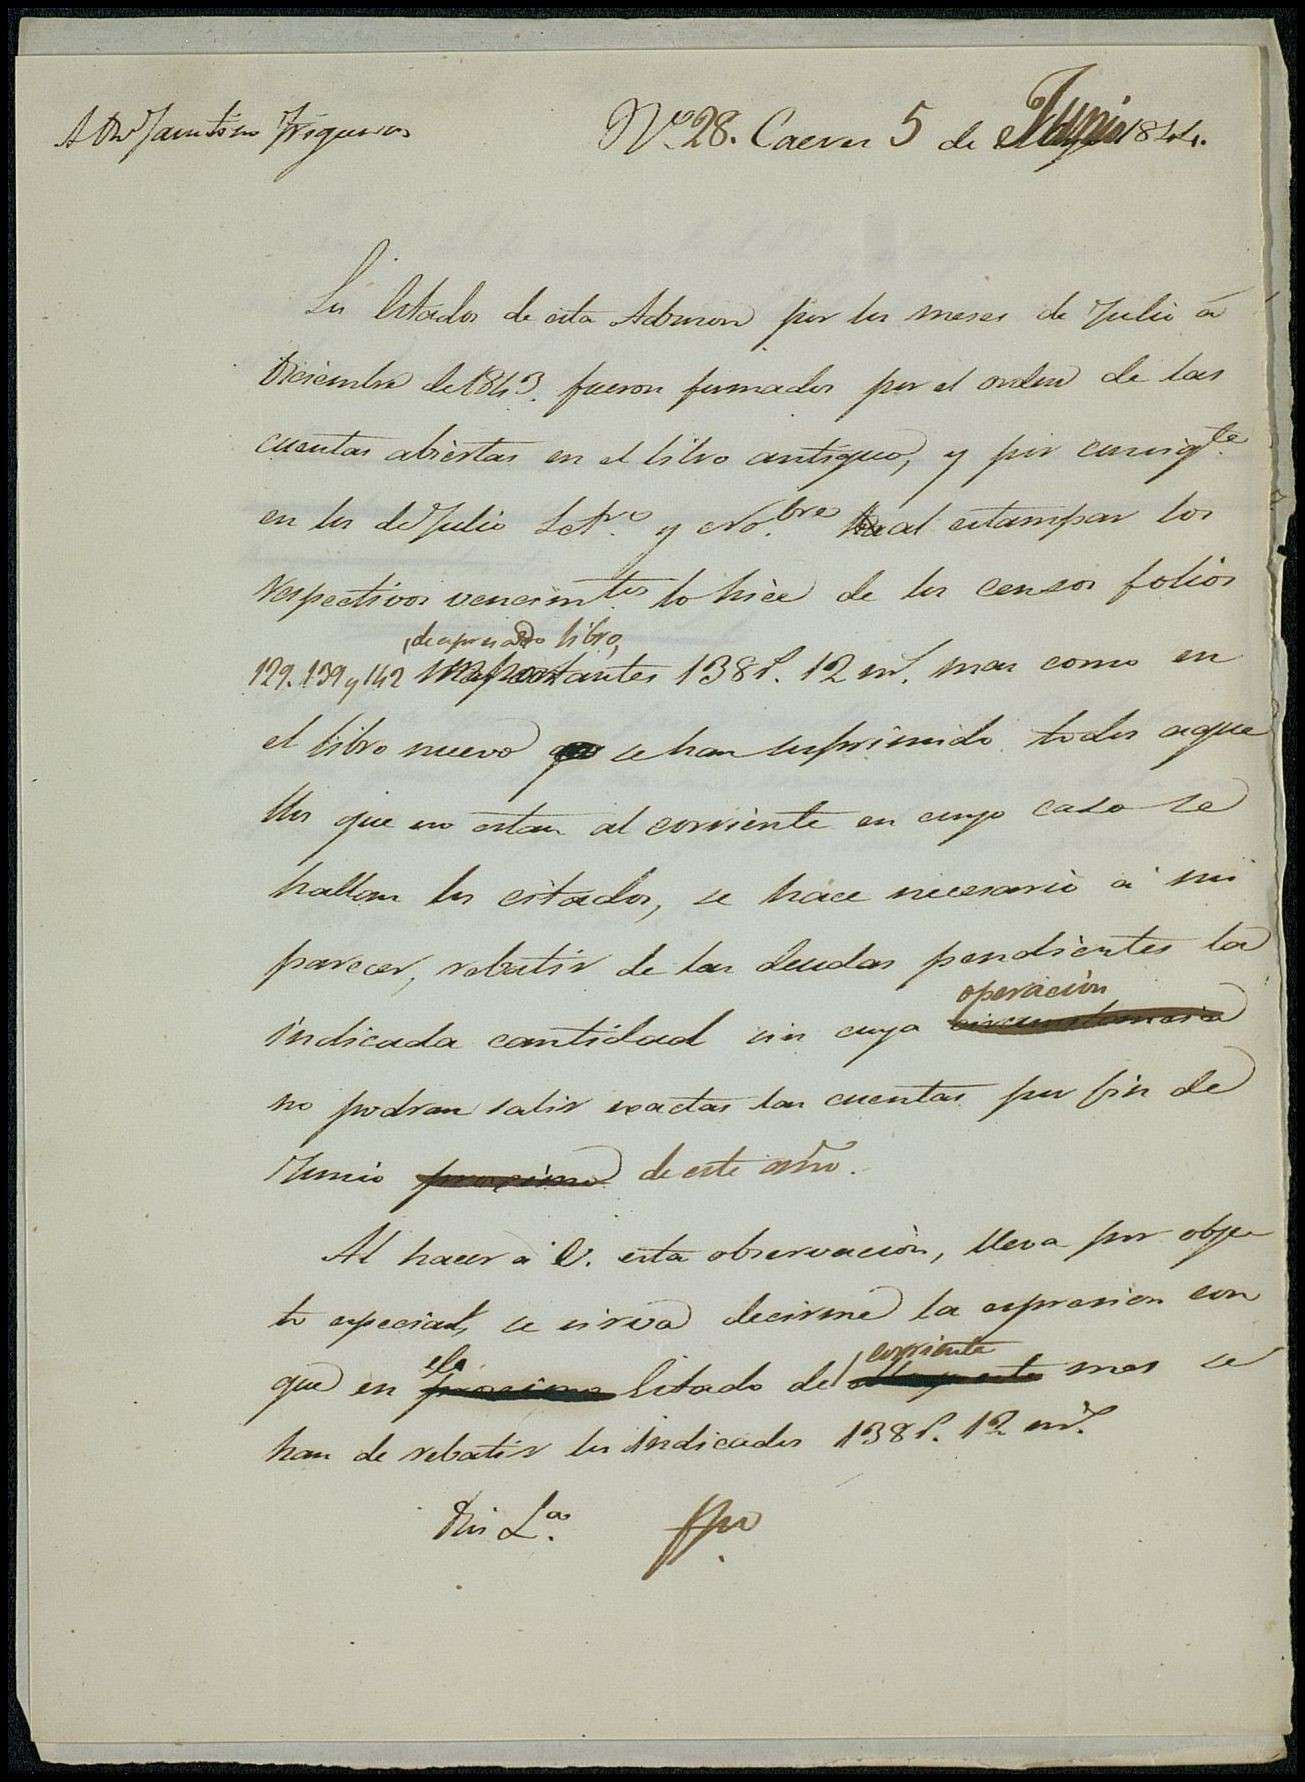 A Dn Faustino Trigueros
No. 28. Caceres 5 de Junio 1844.
Los Estados de esta Admon por los meses de Julio á
Diciembre de 1843. fueron formados por el orden de las
cuentas abiertas en el libro antiguo, y por consigte.
en los de Julio Setre. y Nobre. al estampar los
respectivos vencimtos lo hice de los censos folios
129. 139 y 142 , de espresado libro, importantes 138 r. 12 mrs. mas como en
el libro nuevo se han suprimido todos aque
llos que no estan al corriente en cuyo caso se
hallan los citados, se hace necesario á mi
parecer, rebatir de las deudas pendientes la
indicada cantidad sin cuya operacion circunstancia
no podran salir exactas las cuentas por fin de
Junio proximo de este año.
Al hacer á V. esta observacion, lleva por obje
to especial, se sirva decirme la espresion con
que en el proximo Estado del corriente mes se
han de rebatir los indicados 138 r. 12 mrs.
Dios La.